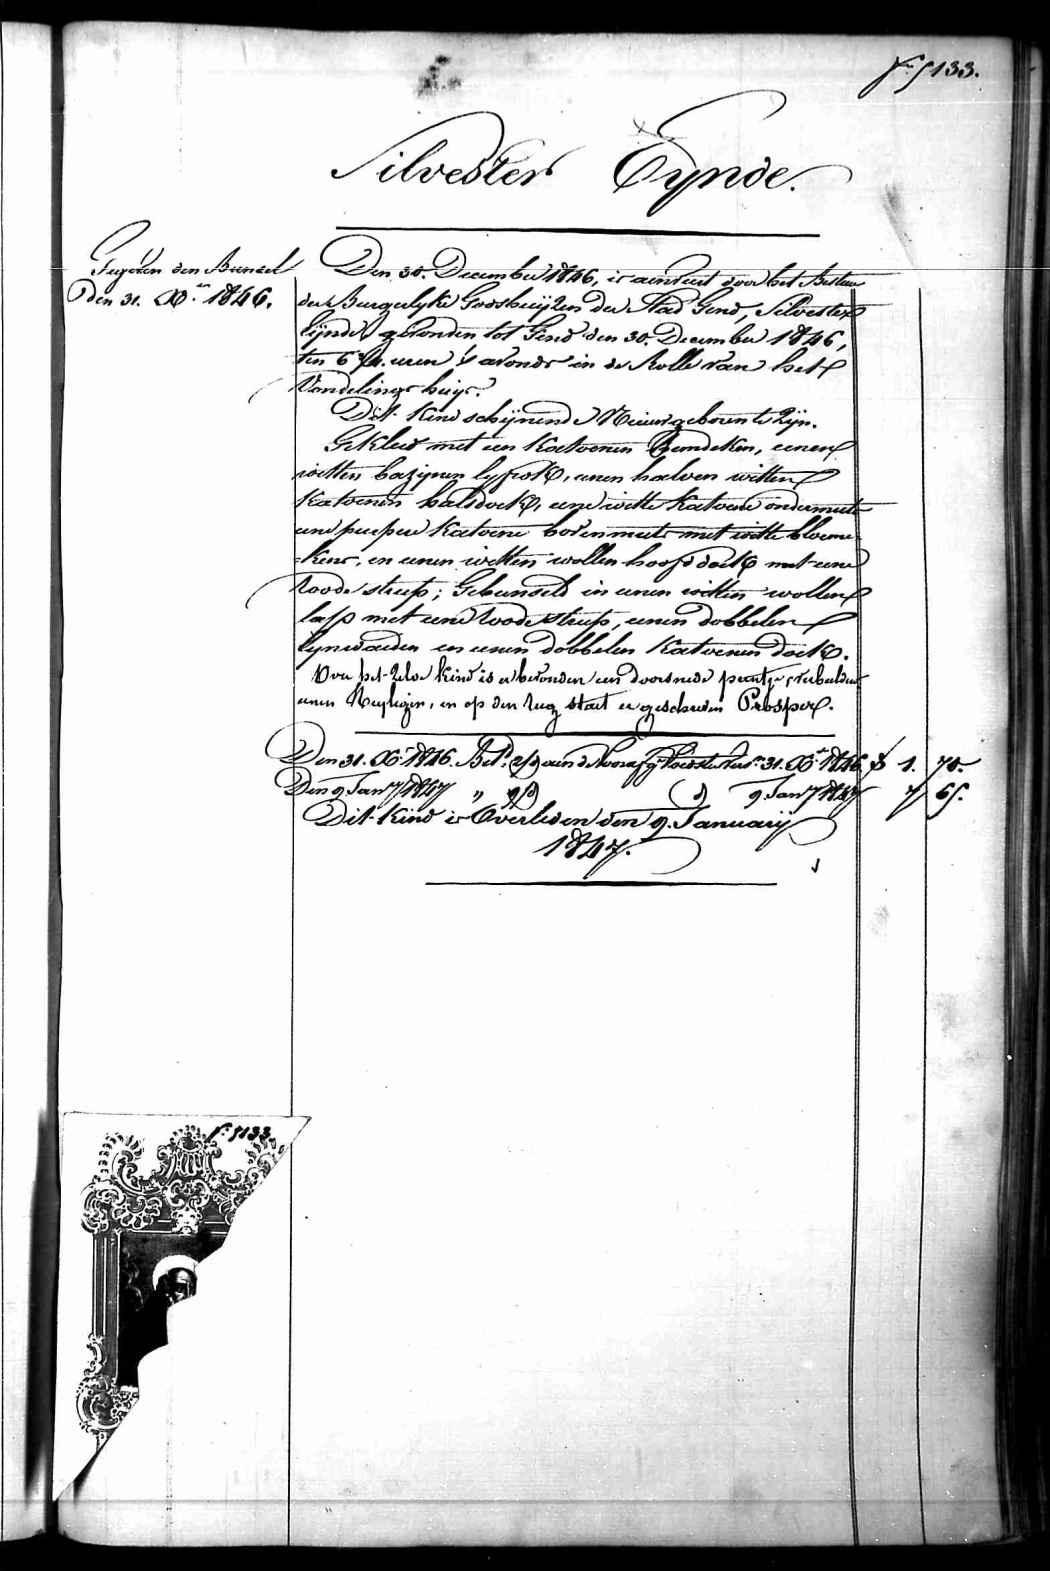 N.° 5133.
Silvester Eynde.
Gegeven den Bundel
den 31. Xber 1846.
Den 30. December 1846, is aenveert door het Bestuer
der Burgerlyke Godshuyzen der Stad Gend, Silvester
Eynde, gevonden tot Gend den 30. December 1846,
ten 6 uren 's avonds in de Rolle van het
Vondelingshuys.
Dit kind schijnende Nieuwgeboren te zijn.
Gekleed met een Katoenen hemdeken, eenen
witten bazijnen lyfrok, eenen halven witten
Katoenen halsdoek, eene witte Katoene ondermuts
eene purpere Katoene bovenmuts met witte bloeme-
kens, en eenen witten wollen hoofddoek met eene
roode streep; Gebunseld in eenen witten wollen
lap met eene roode streep, eenen dobbelen
lynwaeden en eenen dobbelen Katoenen doek.
Over het zelve kind is er bevonden een doorsnede prentje verbeeldende
eenen Heyligen, en op den rug staet er geschreven Prosper.
Den 31. Xber 1846. Betd. aen de voedster 31. Xber 1846. 1. 70.
Den 9 Jany 1847 " 9 Jany 1847 7 65.
Dit kind is Overleden den 9. Januarij
1847.
N.° 5133